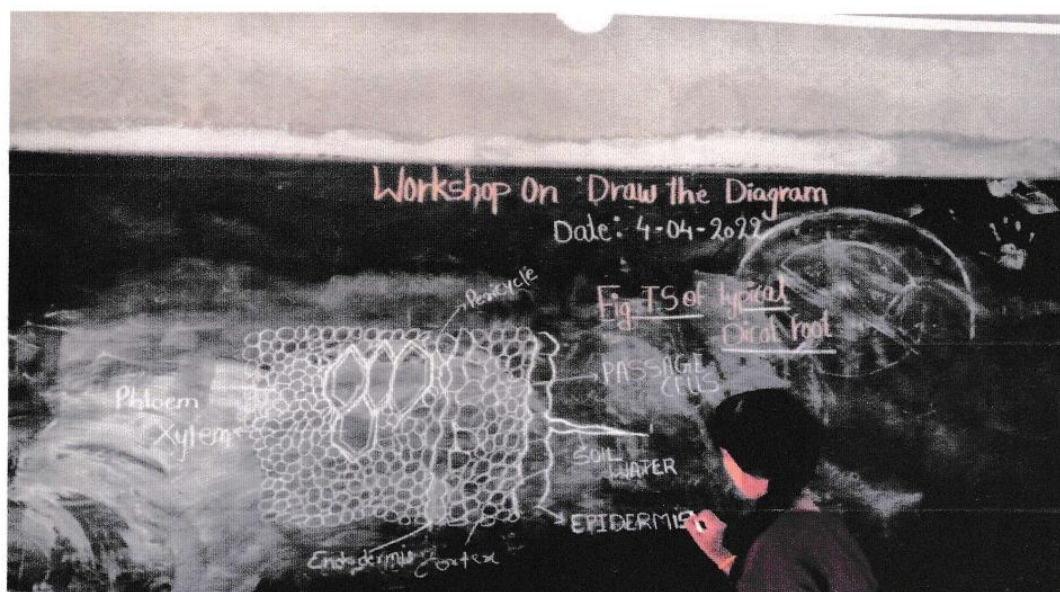 Workshop On Draw the Diagram
Date: 4-04-2022
Pericycle
Fig TS of typical
Dicot root
PASSAGE
CELLS
Phloem
Xylem
SOIL
WATER
EPIDERMIS
Endodermis
Cortex